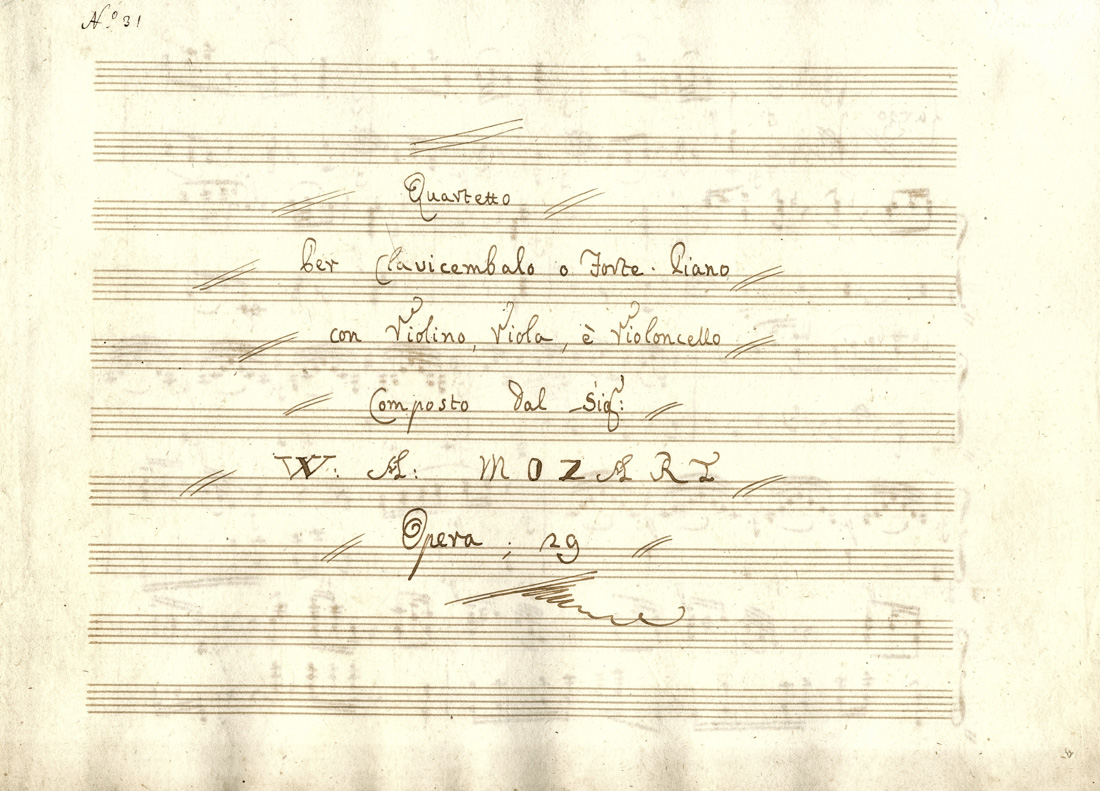 N.º 31
Quartetto
per Clavicembalo o Forte. Piano
con Violino, Viola, è Violoncello
Composto dal Sigʳ:
W: A: MOZART
Opera ; 29